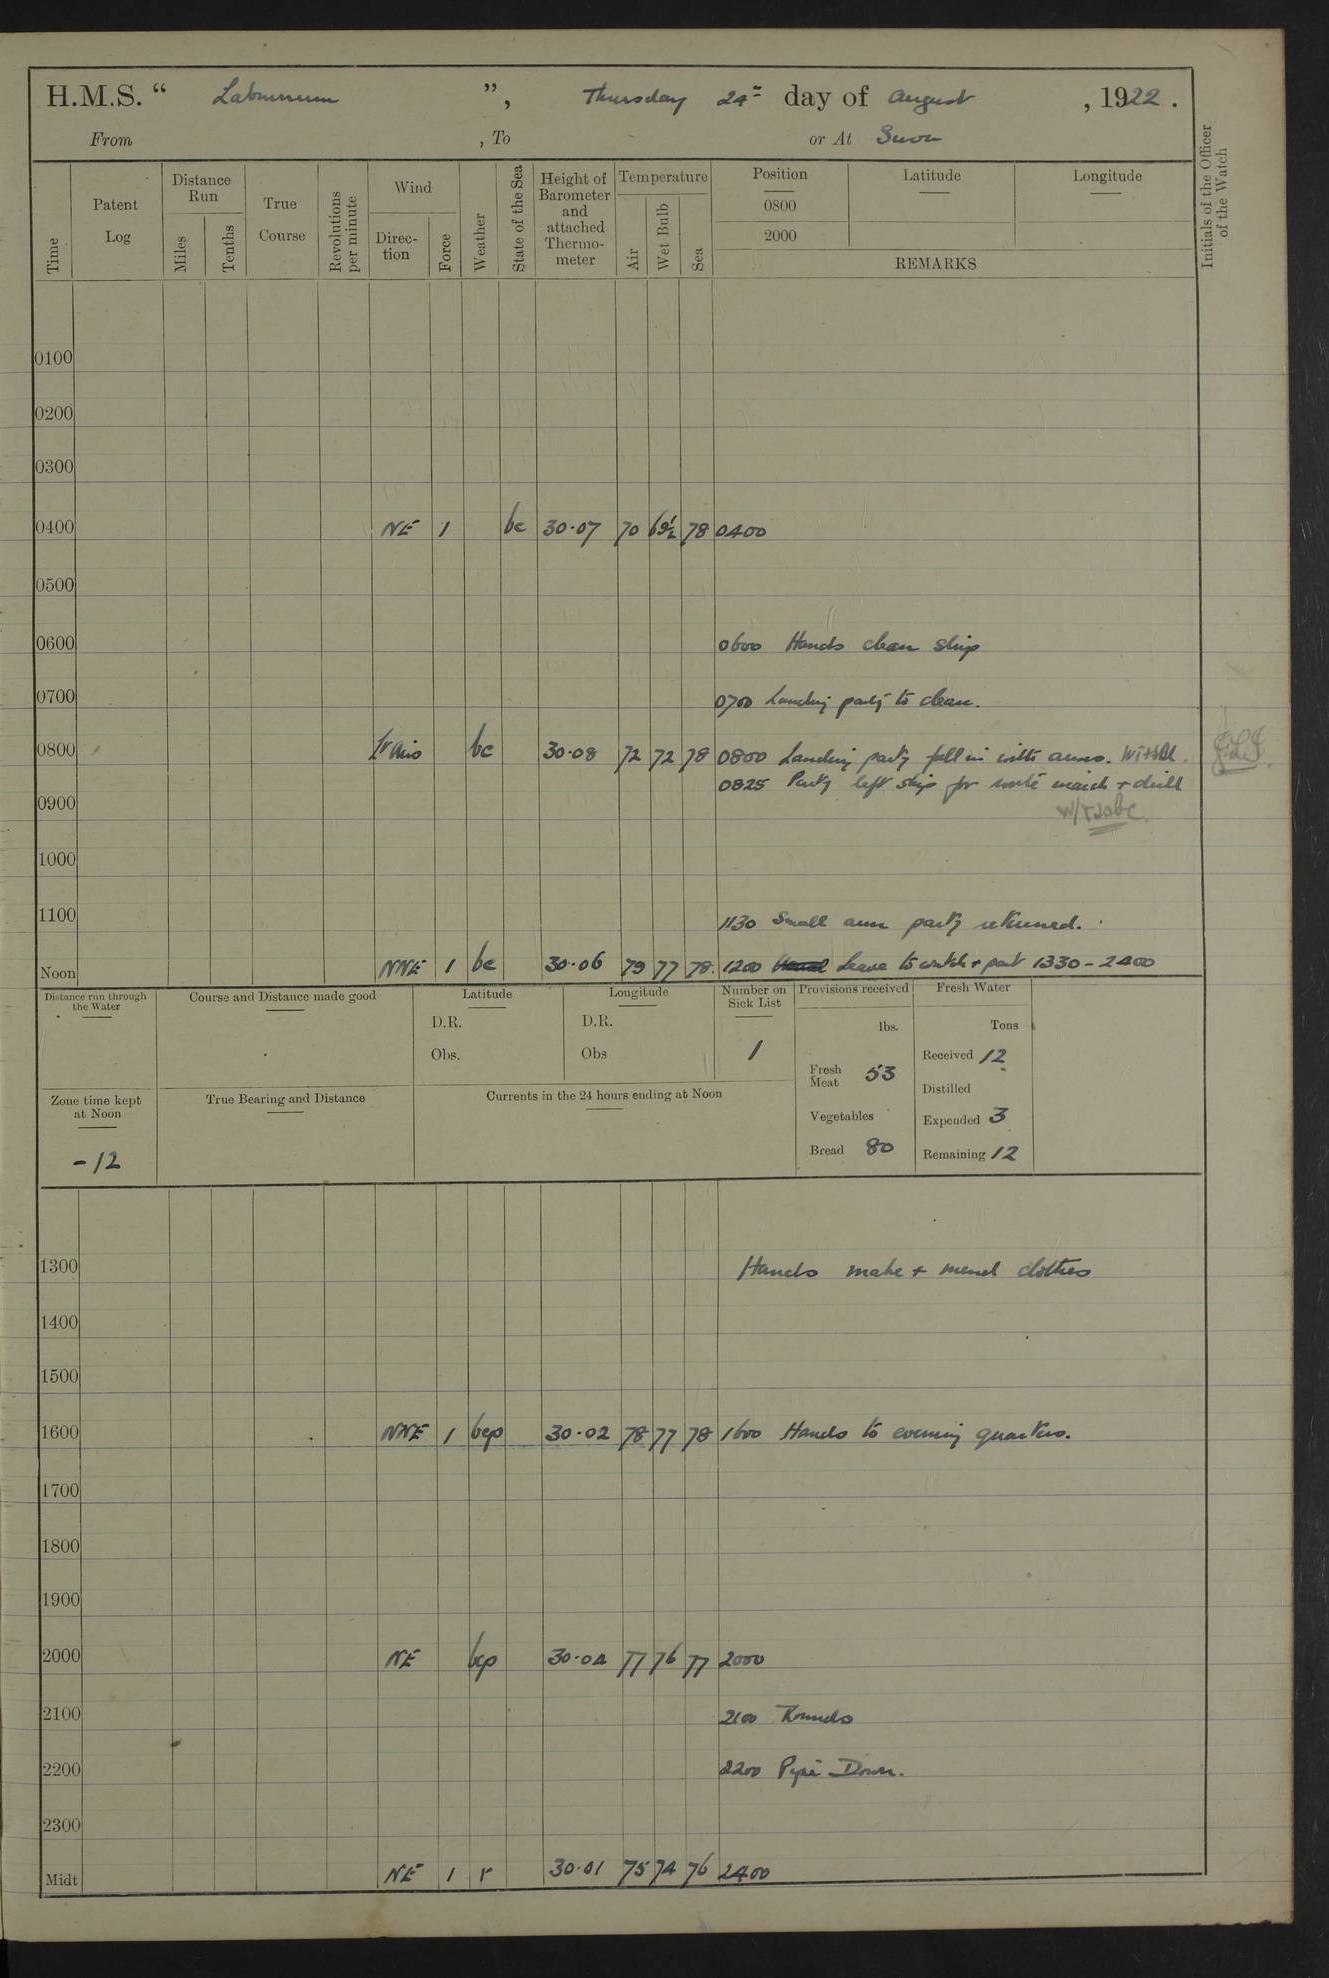 H.M.S. “ Laburnum ”, Thursday 24th day of August , 1922 .
From , To or At Suva
Time
Patent Log
Distance Run
Miles
Tenths
True Course
Revolutions per minute
Wind
Direction
Force
Weather
State of the Sea
Height of Barometer and attached Thermometer
Temperature
Air
Wet Bulb
Sea
Position
0800
2000
Latitude
Longitude
REMARKS
Initials of the Officer of the Watch
0100
0200
0300
0400 NE 1 bc 30·07 70 69½ 78 0400
0500
0600 0600 Hands clean ship
0700 0700 Landing party to clean.
0800 bc 30·08 72 72 78 0800 Landing party fall in with arms.
0825 Party left ship for route march + drill
0900
1000
1100
1130 Small arm party returned.
Noon NNE 1 bc 30·06 79 77 78. 1200 Leave to watch + part 1330 - 2400
Distance run through the Water
Course and Distance made good
Latitude
D.R.
Obs.
Longitude
D.R.
Obs
Number on Sick List
1
Provisions received
lbs.
Fresh Meat 53
Vegetables
Bread 80
Fresh Water
Tons
Received 12
Distilled
Expended 3
Remaining 12
Zone time kept at Noon
-12
True Bearing and Distance
Currents in the 24 hours ending at Noon
1300 Hands make + mend clothes
1400
1500
1600 NNE 1 bcp 30·02 78 77 78 1600 Hands to evening quarters.
1700
1800
1900
2000 NE bcp 30·04 77 76 77 2000
2100 2100 Rounds
2200 2200 Pipe Down.
2300
Midt NE 1 r 30·01 75 74 76 2400